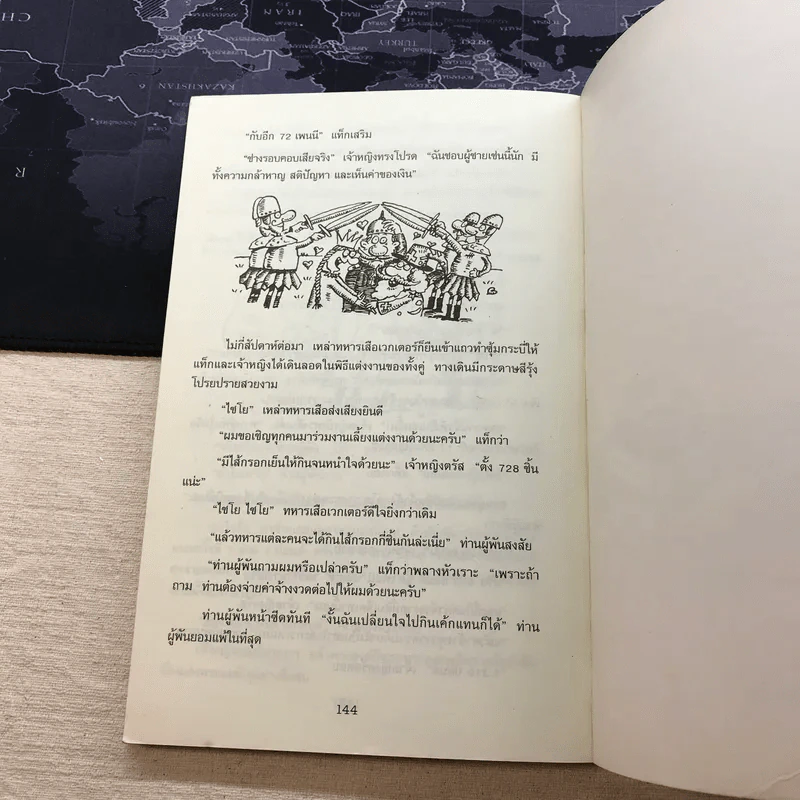 KAZAKHSTAN
IRAN
TURKEY
R
"กับอีก 72 เพนนี" แท็กเสริม
"ช่างรอบคอบเสียจริง" เจ้าหญิงทรงโปรด "ฉันชอบผู้ชายเช่นนี้นัก มี
ทั้งความกล้าหาญ สติปัญหา และเห็นค่าของเงิน"
ไม่กี่สัปดาห์ต่อมา เหล่าทหารเสือเวกเตอร์ก็ยืนเข้าแถวทำซุ้มกระบี่ให้
แท็กและเจ้าหญิงได้เดินลอดในพิธีแต่งงานของทั้งคู่ ทางเดินมีกระดาษสีรุ้ง
โปรยปรายสวยงาม
"ไชโย" เหล่าทหารเสือส่งเสียงยินดี
"ผมขอเชิญทุกคนมาร่วมงานเลี้ยงแต่งงานด้วยนะครับ" แท็กว่า
"มีไส้กรอกเย็นให้กินจนหนำใจด้วยนะ" เจ้าหญิงตรัส "ตั้ง 728 ชิ้น
แน่ะ"
"ไชโย ไชโย" ทหารเสือเวกเตอร์ดีใจยิ่งกว่าเดิม
"แล้วทหารแต่ละคนจะได้กินไส้กรอกกี่ชิ้นกันล่ะเนี่ย" ท่านผู้พันสงสัย
"ท่านผู้พันถามผมหรือเปล่าครับ" แท็กว่าพลางหัวเราะ "เพราะถ้า
ถาม ท่านต้องจ่ายค่าจ้างงวดต่อไปให้ผมด้วยนะครับ"
ท่านผู้พันหน้าซีดทันที "งั้นฉันเปลี่ยนใจไปกินเค้กแทนก็ได้" ท่าน
ผู้พันยอมแพ้ในที่สุด
144